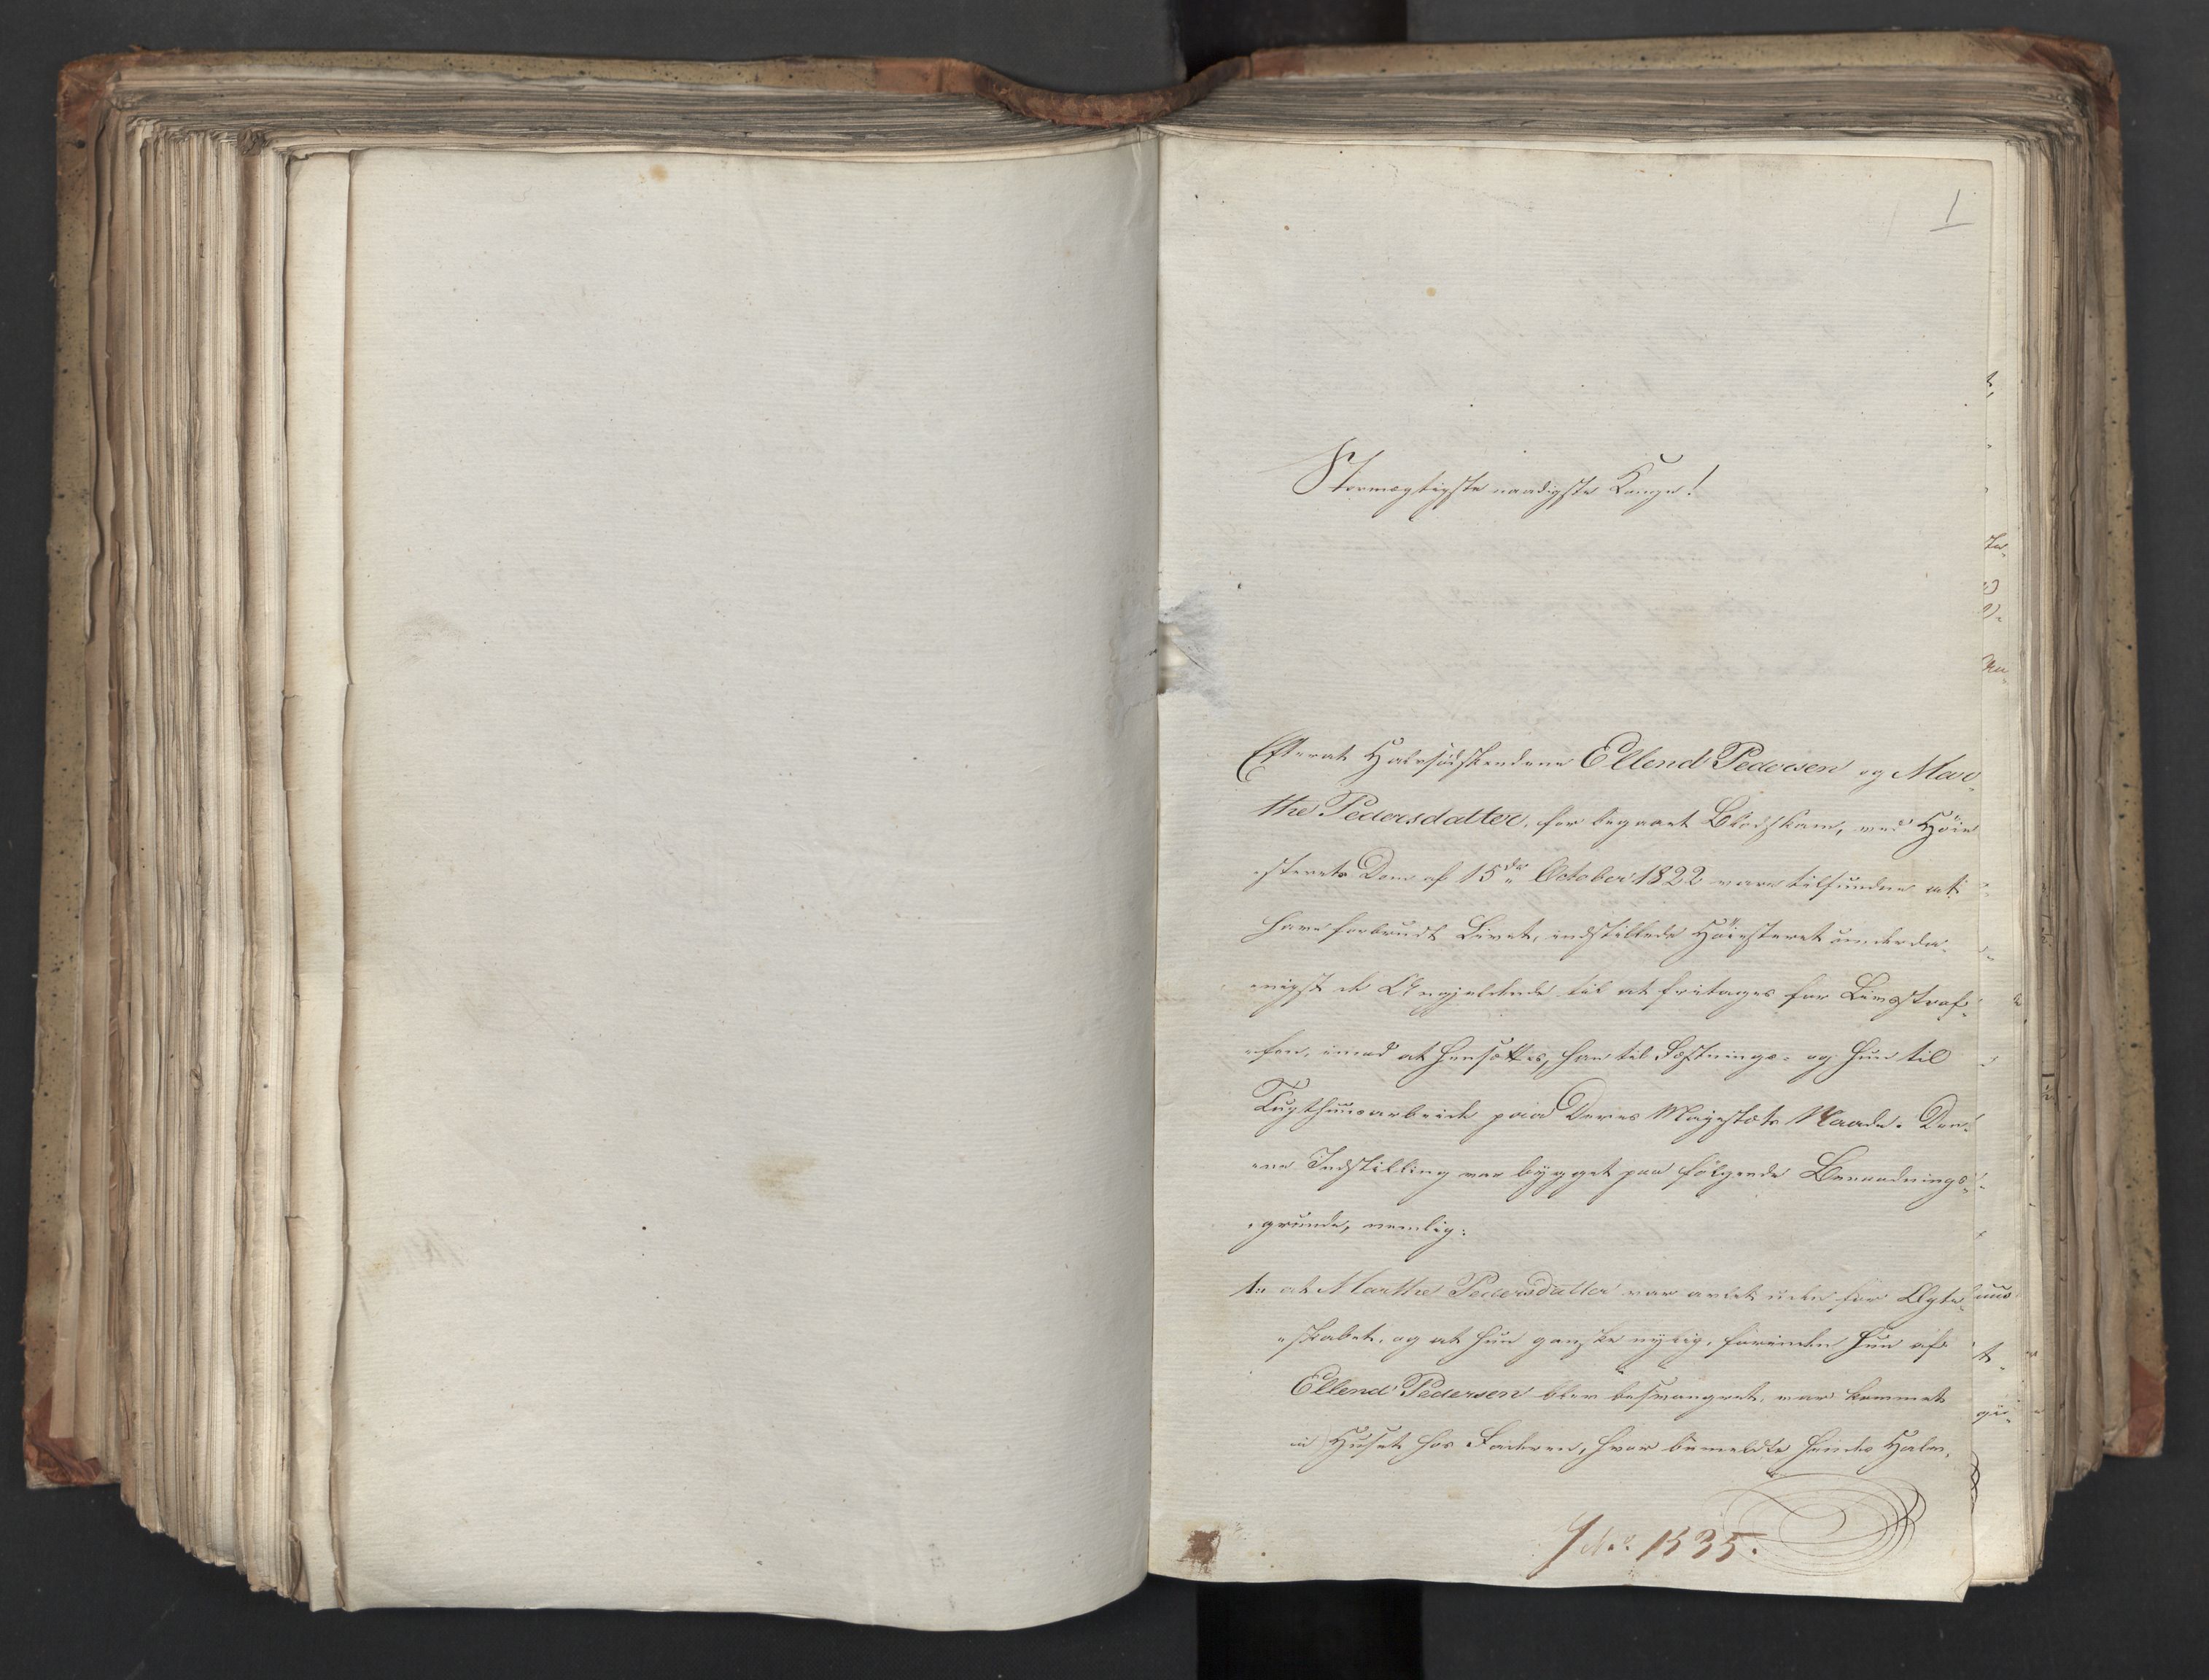 1
Stormægtigste naadigste Konge!
Efterat Halvsødskendene Ellend Pedersen og Mar-
the Pedersdatter, for begaaet Blodskam, ved Høie
steretsDom af 15de October 1822 vare tilfundne at
have forbrudt Livet, indstillede Høiesteret underda-
nigst de Angjeldende til at fritages for Livsstraf-
fen, imod at hensættes, han til Fæstnings- og hun til
Tugthuusarbeide paa Deres Majestæts Naade. Den-
ne Indstilling var bygget paa følgende Benaadnings-
grunde, nemlig:
1: at Marthe Pedersdatter var avlet uden for Ægte-
skabet, og at hun ganske nylig, forinden hun af
Ellend Pedersen blev besvangret, var kommet
i Huset hos Faderen, hvor bemeldte hendes Halv-
J. No. 1535.